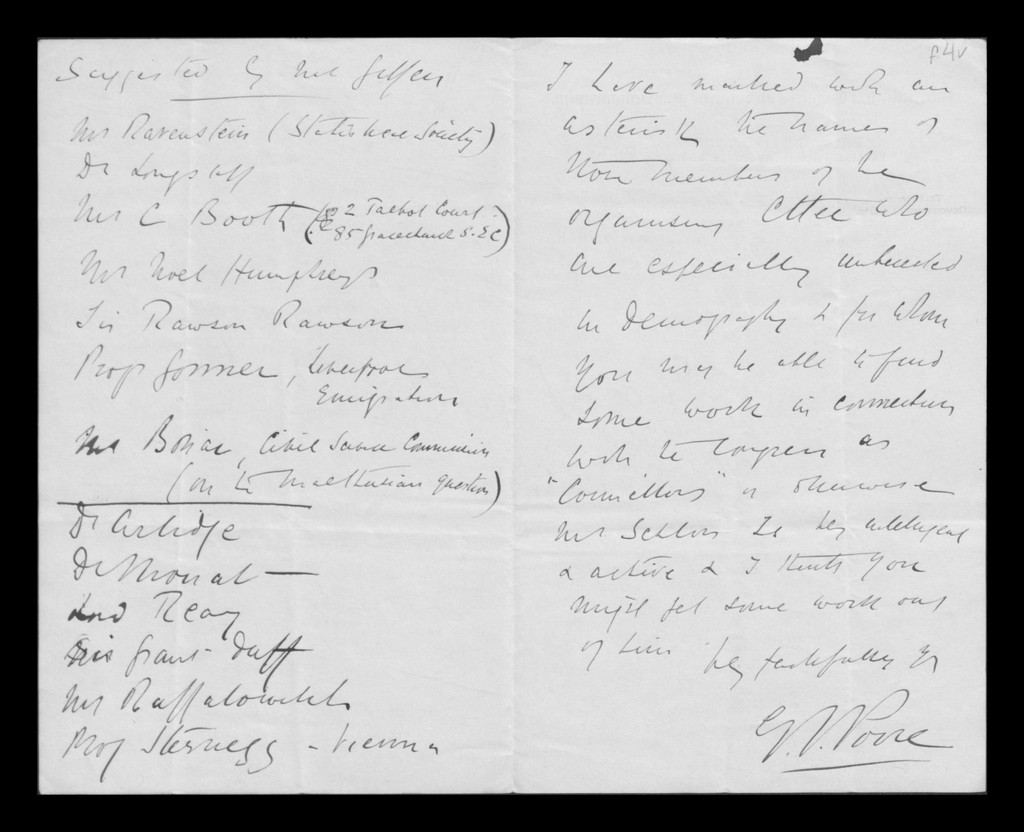 Suggested by Mr Giffen
Mr Ravenstein (Statistical Society)
Dr Longstaff
Mr C Booth (2 Talbot Court
85 Gracechurch S. EC)
Mr Noel Humphreys
Sir Rawson Rawson
Prof Gonner, Liverpool
Emigration
Mr Bonar, Civil Service Commission
(on the Malthusian question)
Dr Arlidge
Dr Mouat —
Lord Reay
Grant Duff
Mr Raffalowitch
Prof Sternegg - Vienna
p4v
I have marked with an
asterisk the names of
those members of the
organising Cttee who
are especially interested
in Demography & for whom
you may be able to find
some work in connection
with the Congress as
"Councillors" or otherwise
Mr Sellon is very intelligent
& active & I think you
might get some work out
of him Very faithfully yr
G. V. Poore